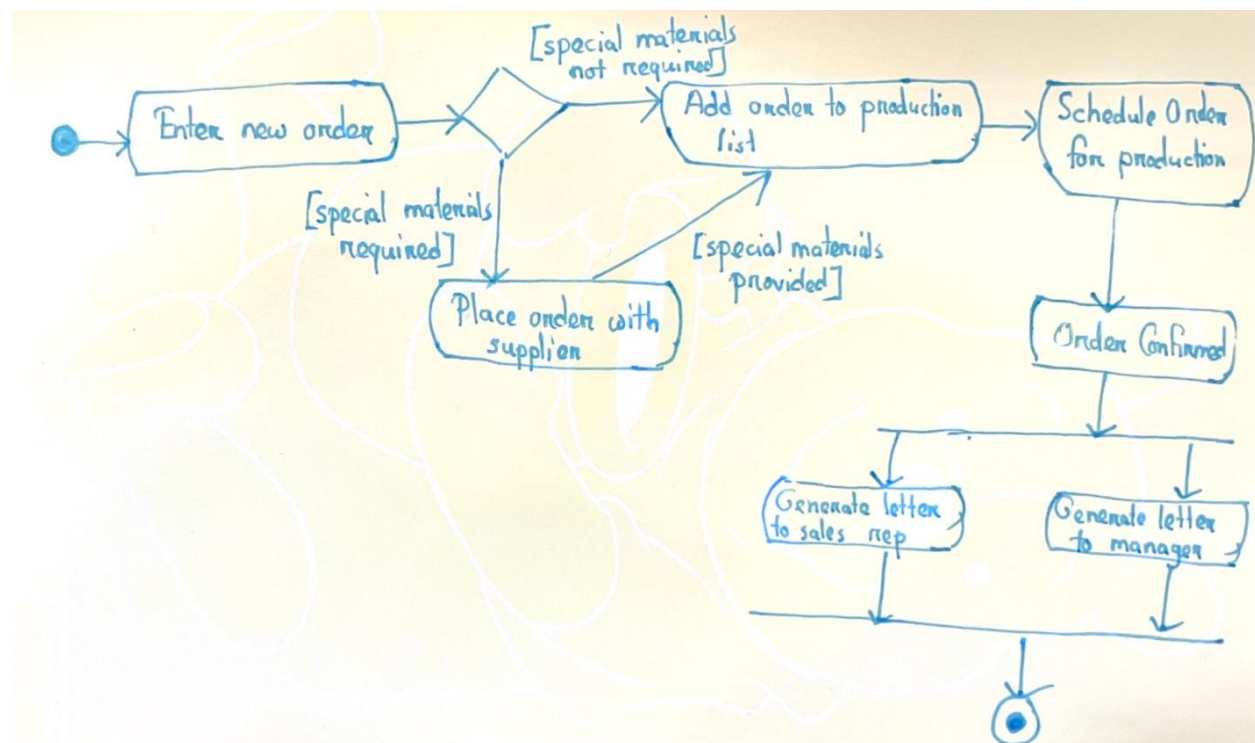 [special materials
not required]
Enter new order
Add order to production
list
Schedule Order
for production
[special materials
required]
[special materials
provided]
Place order with
supplier
Order Confirmed
Generate letter
to sales rep
Generate letter
to manager